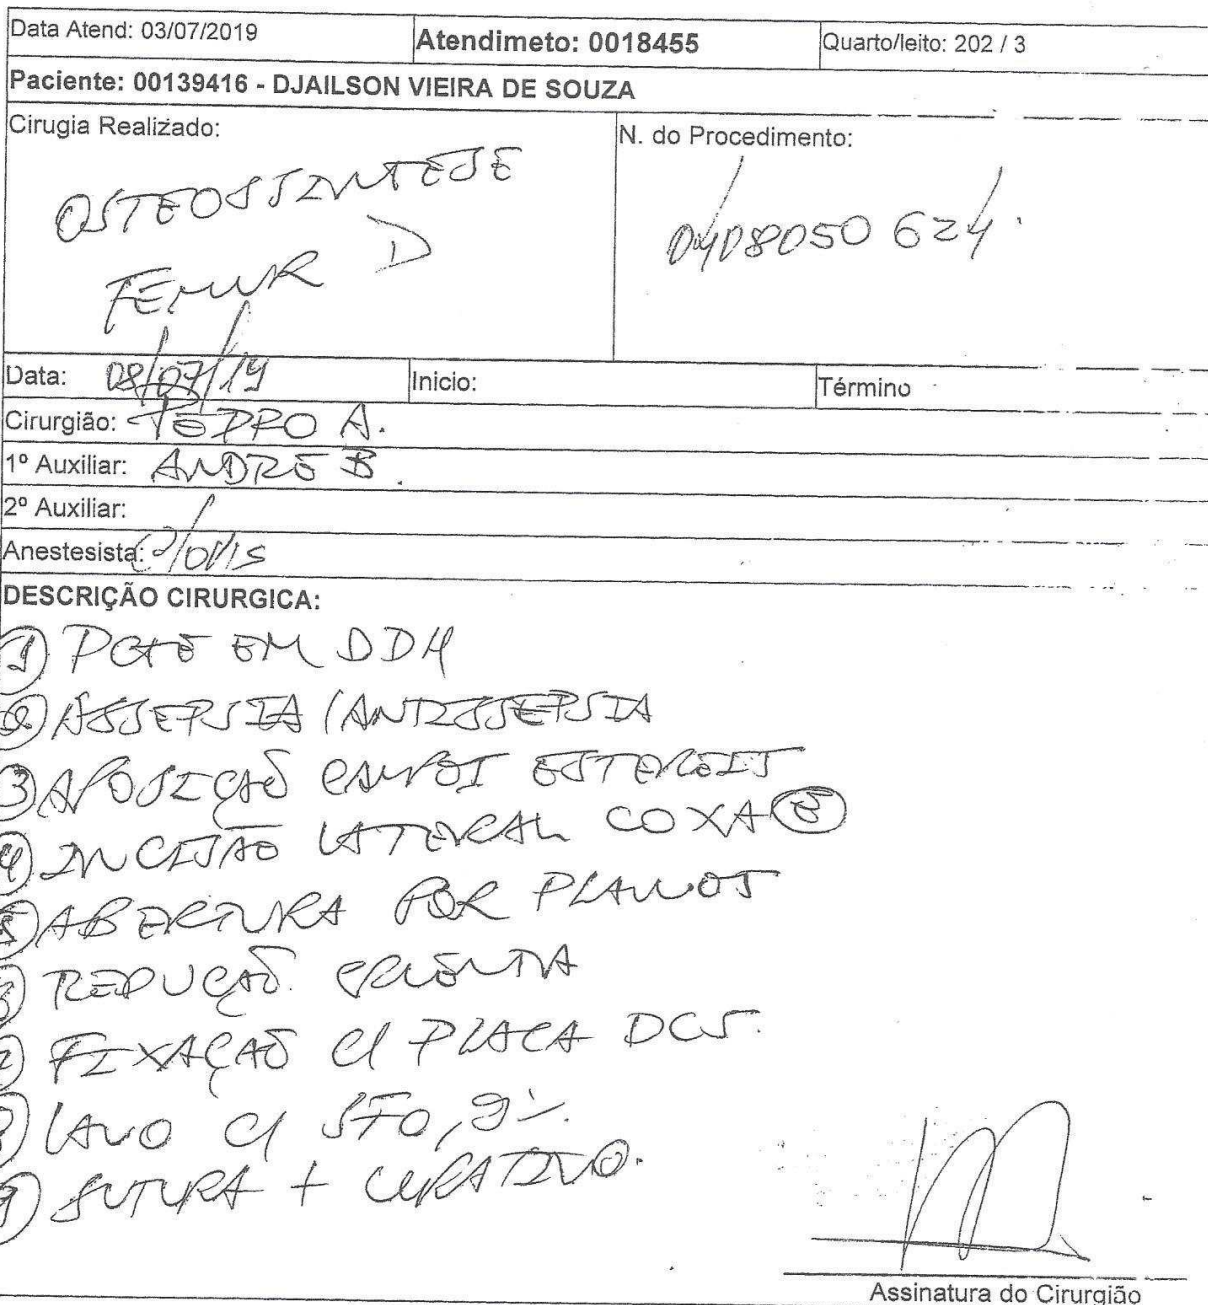 Data Atend: 03/07/2019 Atendimeto: 0018455 Quarto/leito: 202 / 3
Paciente: 00139416 - DJAILSON VIEIRA DE SOUZA
Cirugia Realizado: N. do Procedimento:
OSTEOSSINTESE
FEMUR D
0408050624
Data: 08/07/19 Inicio: Término
Cirurgião: PEDRO A.
1º Auxiliar: ANDRE B.
2º Auxiliar:
Anestesista: Clovis
DESCRIÇÃO CIRURGICA:
1 PCTE EM DDH
2 ASSEPSIA / ANTISSEPSIA
3 APOSIÇÃO CAMPOS ESTEREIS
4 INCISÃO LATERAL COXA
5 ABERTURA POR PLANOS
6 REDUÇÃO CRUENTA
7 FIXAÇÃO C/ PLACA DCS.
8 LAVO C/ SF 0,9%.
9 SUTURA + CURATIVO.
Assinatura do Cirurgião